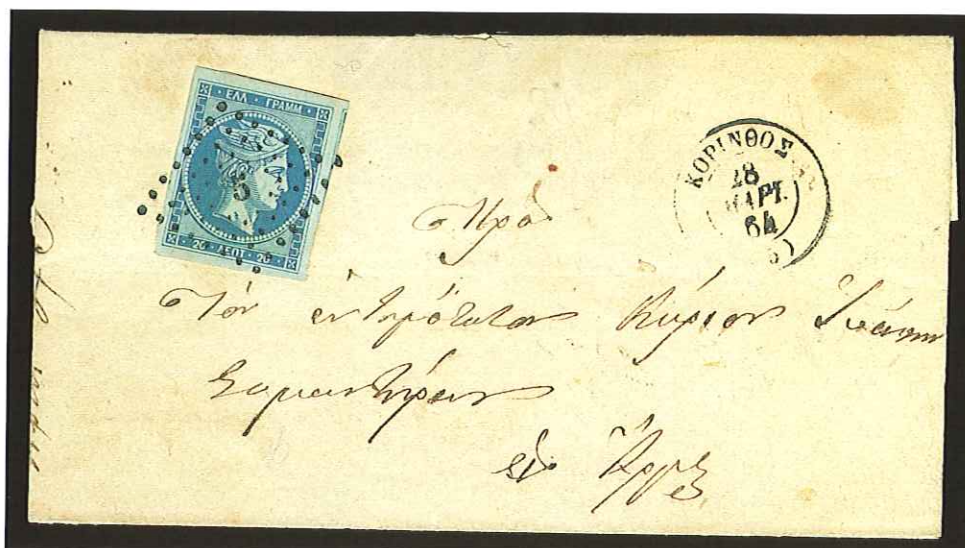 ΕΛΛ · ΓΡΑΜΜ
5
20 ΛΕΠΤ 20
ΚΟΡΙΝΘΟΣ
28
ΜΑΡΤ.
64
Πρὸς
Τὸν ἐντιμότατον Κύριον Ἰωάννην
ἐν Ἄργει